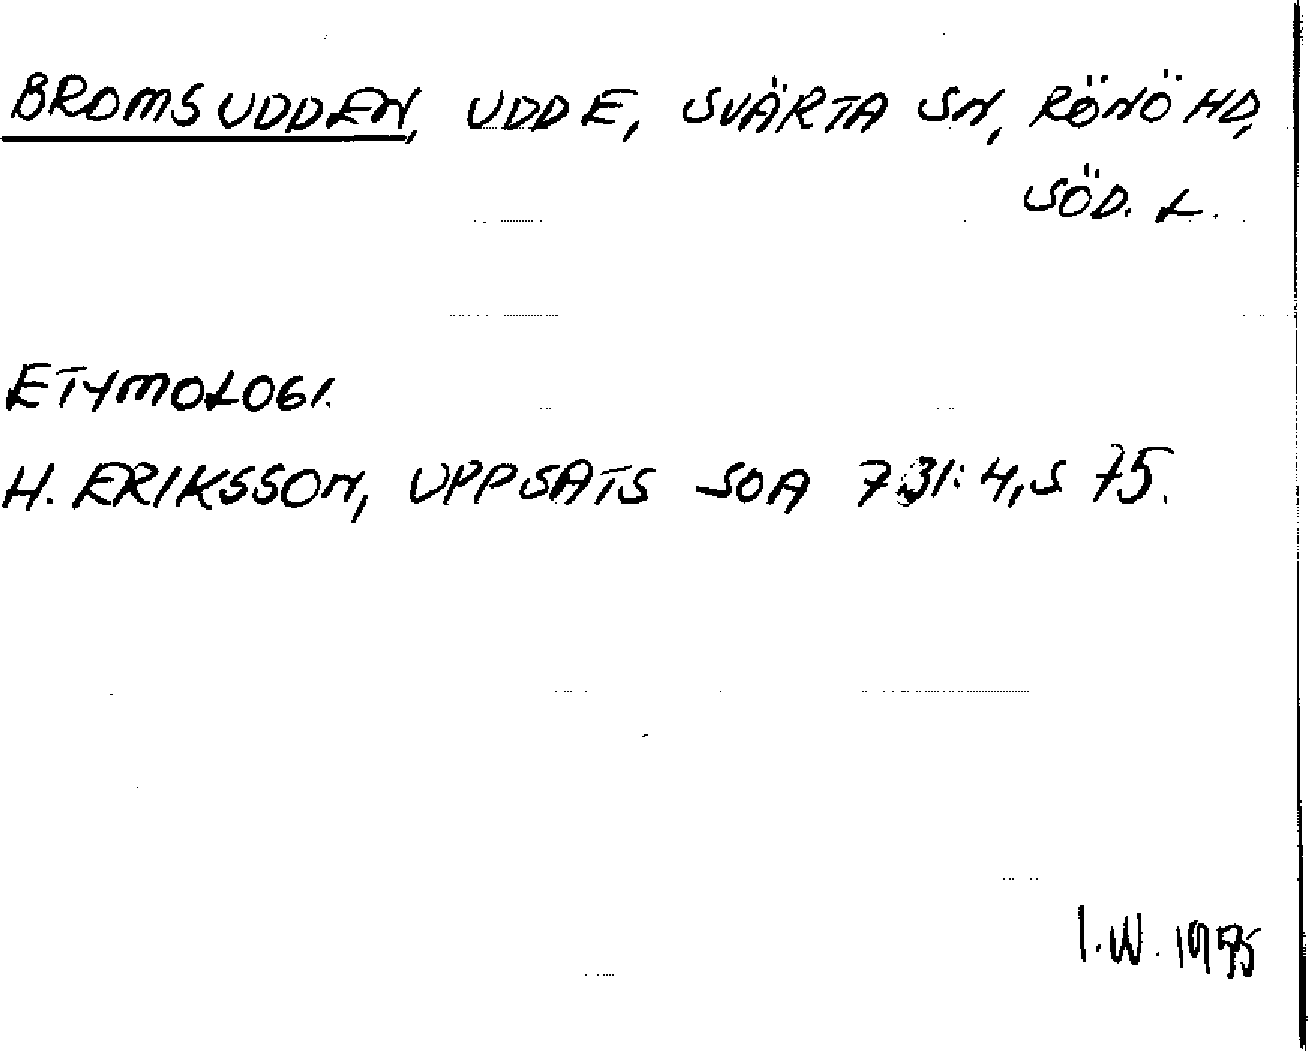 BROMSUDDEN, UDDE, SVÄRTA SN, RÖNÖ HD,
SÖD. L.
ETYMOLOGI.
H. ERIKSSON, UPPSATS SOA 731:4, S 75.
I.W. 1975